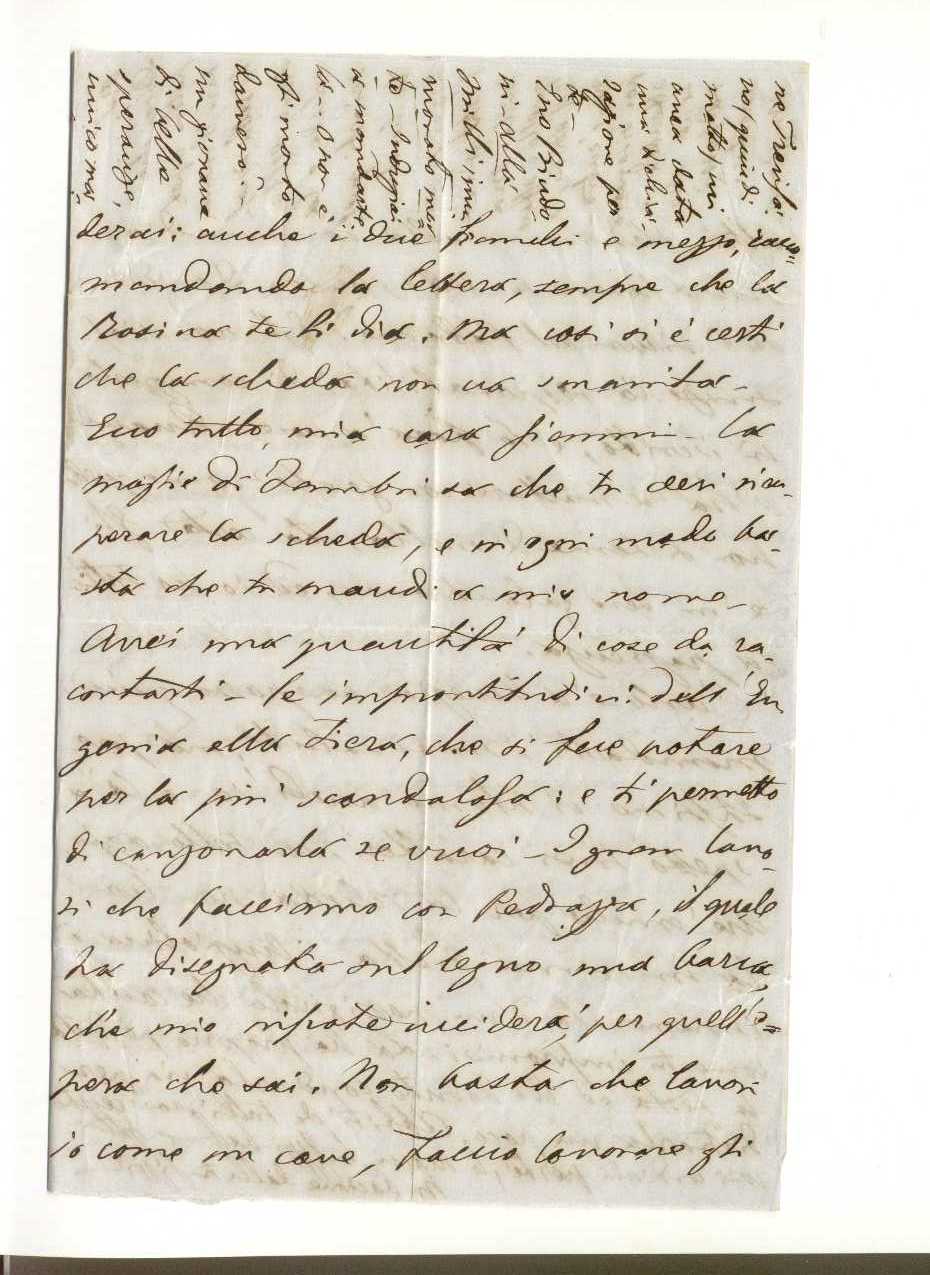 ne Trevisa
no/ quindi
matto/ mi
data
una dichia-
razione per
te—
Bindo
ni - Alla
Milli, inna
morato mor
te -
a mandarte
la - Non è
morto
davvero. -
un giovane
di belle
speranze,
amico mio
derai: anche i due franchi e mezzo, racco=
mandando la lettera, sempre che la
Rosina te li dia. Ma così si è certi
che la scheda non va smarrita -
Ecco tutto, mia cara Giannina - La
moglie di Zambri sa che tu devi ricu-
perare la scheda, e in ogni modo ba-
sta che tu mandi a mio nome -
Avrei una quantità di cose da rac-
contarti - le improntitudini dell'Eu
genia alla Fiera, che si fece notare
per la più scandalosa: e ti permetto
di canzonarla se vuoi - I gran lavo
ri che facciamo con Pedrazza, il quale
ha disegnata sul legno una barca,
che mio nipote inciderà, per quell'o=
pera che sai. Non basta che lavori
io come un cane, faccio lavorare gli